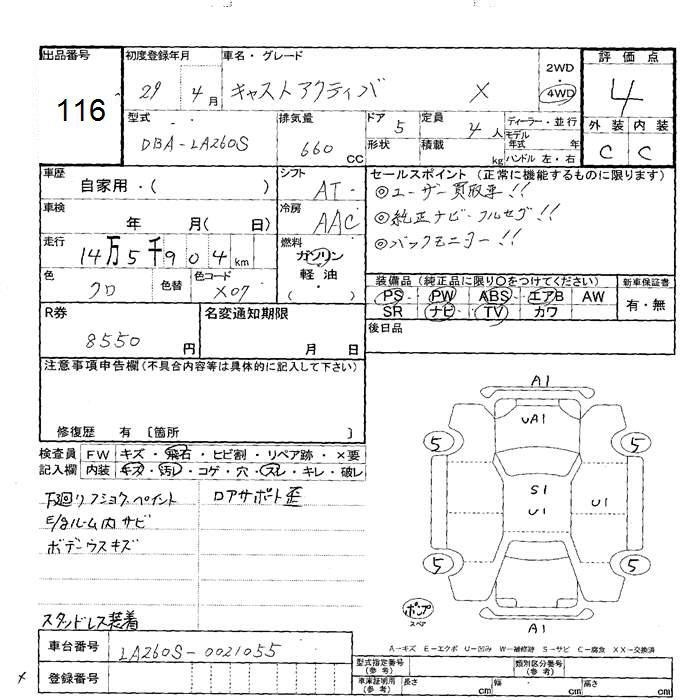 出品番号 初度登録年月 車名・グレード 2WD・4WD 評価点
116 29 4月 キャストアクティバ X 4
型式 排気量 ドア 定員 ディーラー・並行 外装 内装
DBA-LA260S 660 CC 5 4人 モデル年式 年 C C
形状 積載 kg ハンドル 左・右
車歴 シフト セールスポイント(正常に機能するものに限ります)
自家用・( ) AT・ ◎ユーザー買取車!!
車検 冷房 ◎純正ナビ フルセグ!!
年 月( 日) AAC ◎バックモニター!!
走行 燃料
14万5千904km ガソリン・軽油・( )
色 色替 色コード 装備品(純正品に限り○をつけてください) 新車保証書
クロ X07 PS・PW・ABS・エアB AW 有・無
R券 名変通知期限 SR ナビ・TV カワ
8550円 月 日 後日品
注意事項申告欄(不具合内容等は具体的に記入して下さい)
修復歴 有 〔箇所 〕
検査員 FW キズ・飛石・ヒビ割・リペア跡・×要
記入欄 内装 キズ・汚レ・コゲ・穴・スレ・キレ・破レ
下廻りフショク ペイント ロアサポート歪
E/gルーム内サビ
ボデーウスキズ
スタッドレス装着
A1
UA1
5 5
S1
U1 U1
5 5
ポンプ
スペア
A1
A-キズ E-エクボ U-凹ミ W-補修跡 S-サビ C-腐食 XX-交換済
車台番号 LA260S-0021055
型式指定番号(参考) 類別区分番号(参考)
登録番号
車庫証明用(参考) 長さ cm 幅 cm 高さ cm